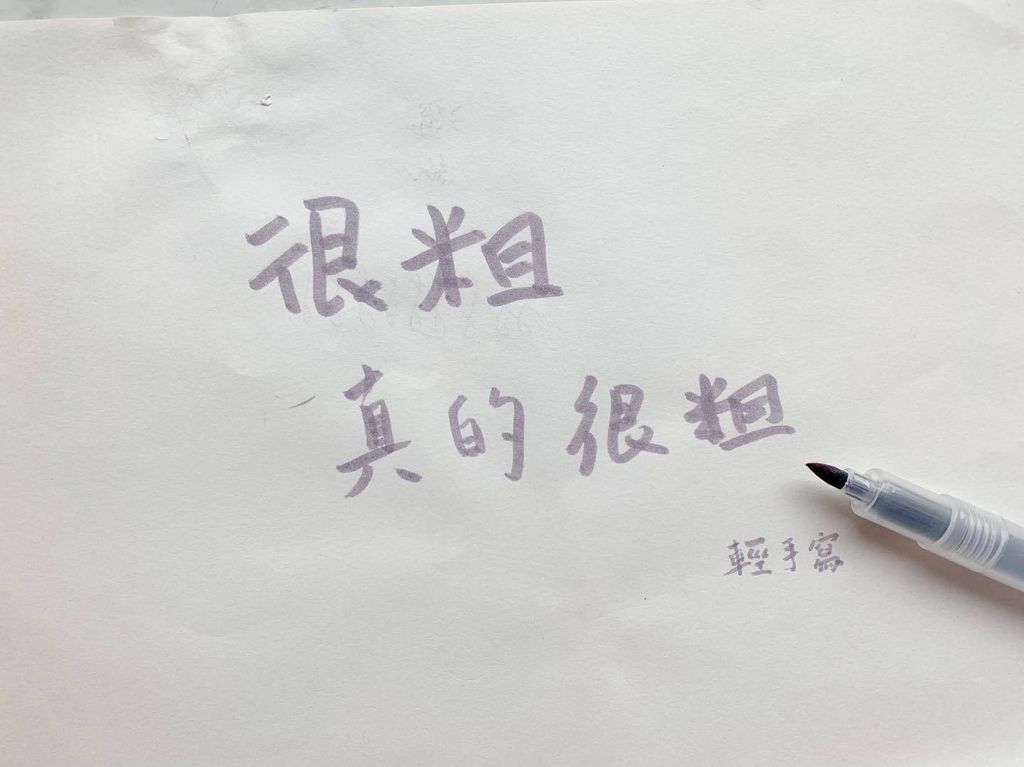 很粗
真的很粗
輕手寫